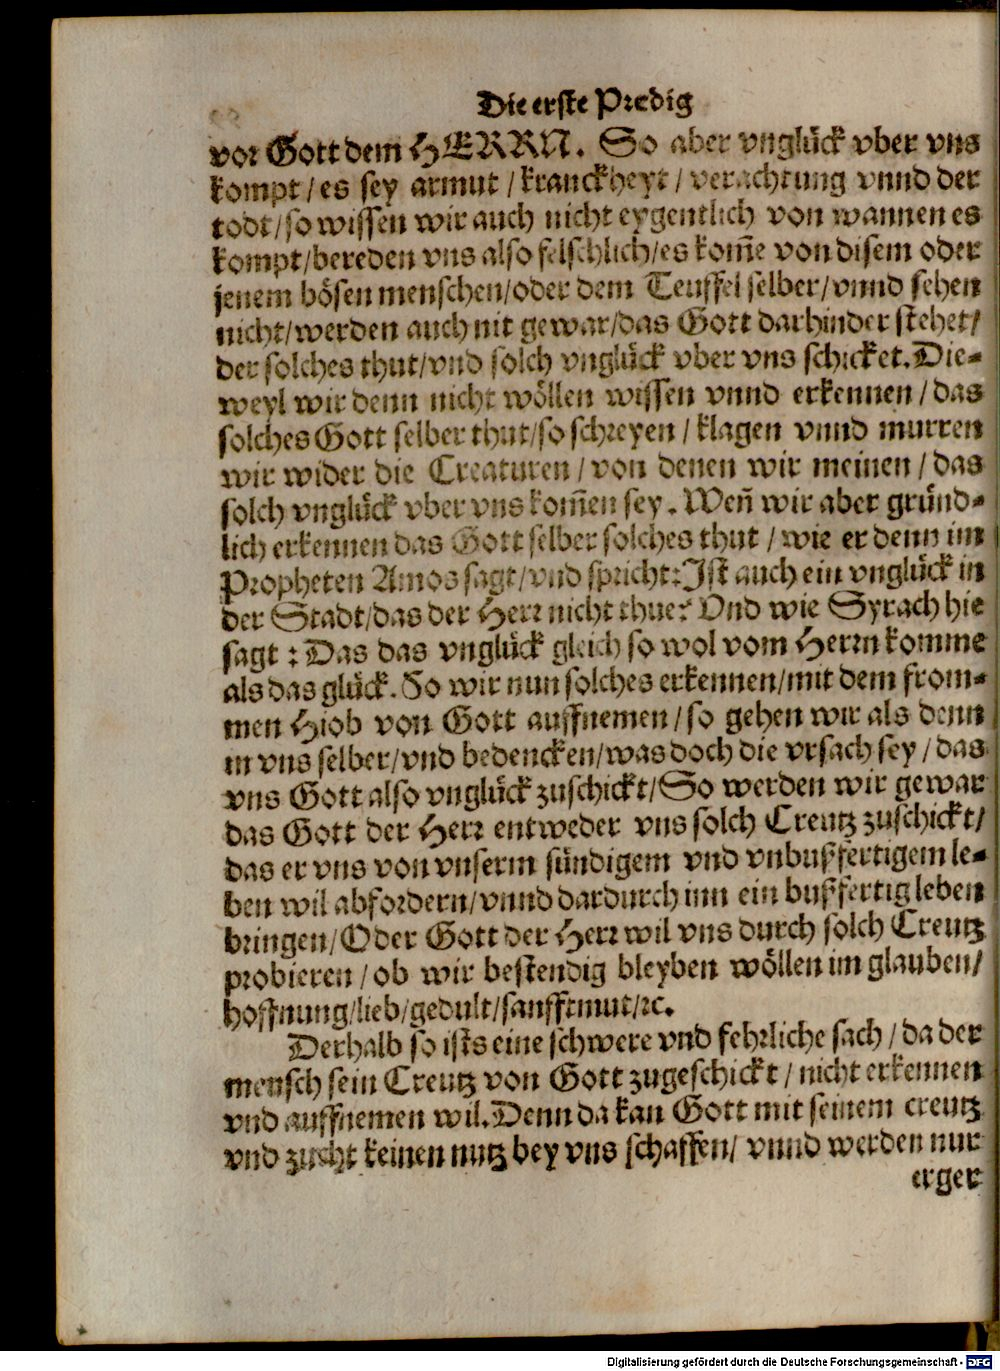 Die erste Predig
vor Gott dem HERRN. So aber vnglück vber vns
kompt/es sey armut/kranckheyt/verachtung vnnd der
todt/so wissen wir auch nicht eygentlich von wannen es
kompt/bereden vns also felschlich/es kom̄e von disem oder
jenem bösen menschen/oder dem Teuffel selber/vnnd sehen
nicht/werden auch nit gewar/das Gott darhinder stehet/
der solches thut/vnd solch vnglück vber vns schicket. Die-
weyl wir denn nicht wöllen wissen vnnd erkennen/das
solches Gott selber thut/so schreyen/klagen vnnd murren
wir wider die Creaturen/von denen wir meinen/das
solch vnglück vber vns kom̄en sey. Wen̄ wir aber gründ-
lich erkennen das Gott selber solches thut/wie er denn im
Propheten Amos sagt/vnd spricht: Ist auch ein vnglück in
der Stadt/das der Herr nicht thue? Vnd wie Syrach hie
sagt: Das das vnglück gleich so wol vom Herrn komme
als das glück. So wir nun solches erkennen/mit dem from-
men Hiob von Gott auffnemen/so gehen wir als denn
in vns selber/vnd bedencken/was doch die vrsach sey/das
vns Gott also vnglück zuschickt/So werden wir gewar
das Gott der Herr entweder vns solch Creutz zuschickt/
das er vns von vnserm sündigem vnd vnbußfertigem le-
ben wil abfordern/vnnd dardurch inn ein bußfertig leben
bringen/Oder Gott der Herr wil vns durch solch Creutz
probieren/ob wir bestendig bleyben wöllen im glauben/
hoffnung/lieb/gedult/sanfftmut/ꝛc.
Derhalb so ists eine schwere vnd fehrliche sach/da der
mensch sein Creutz von Gott zugeschickt/nicht erkennen
vnd auffnemen wil. Denn da kan Gott mit seinem creutz
vnd zucht keinen nutz bey vns schaffen/vnnd werden nur
erger
Digitalisierung gefördert durch die Deutsche Forschungsgemeinschaft - DFG